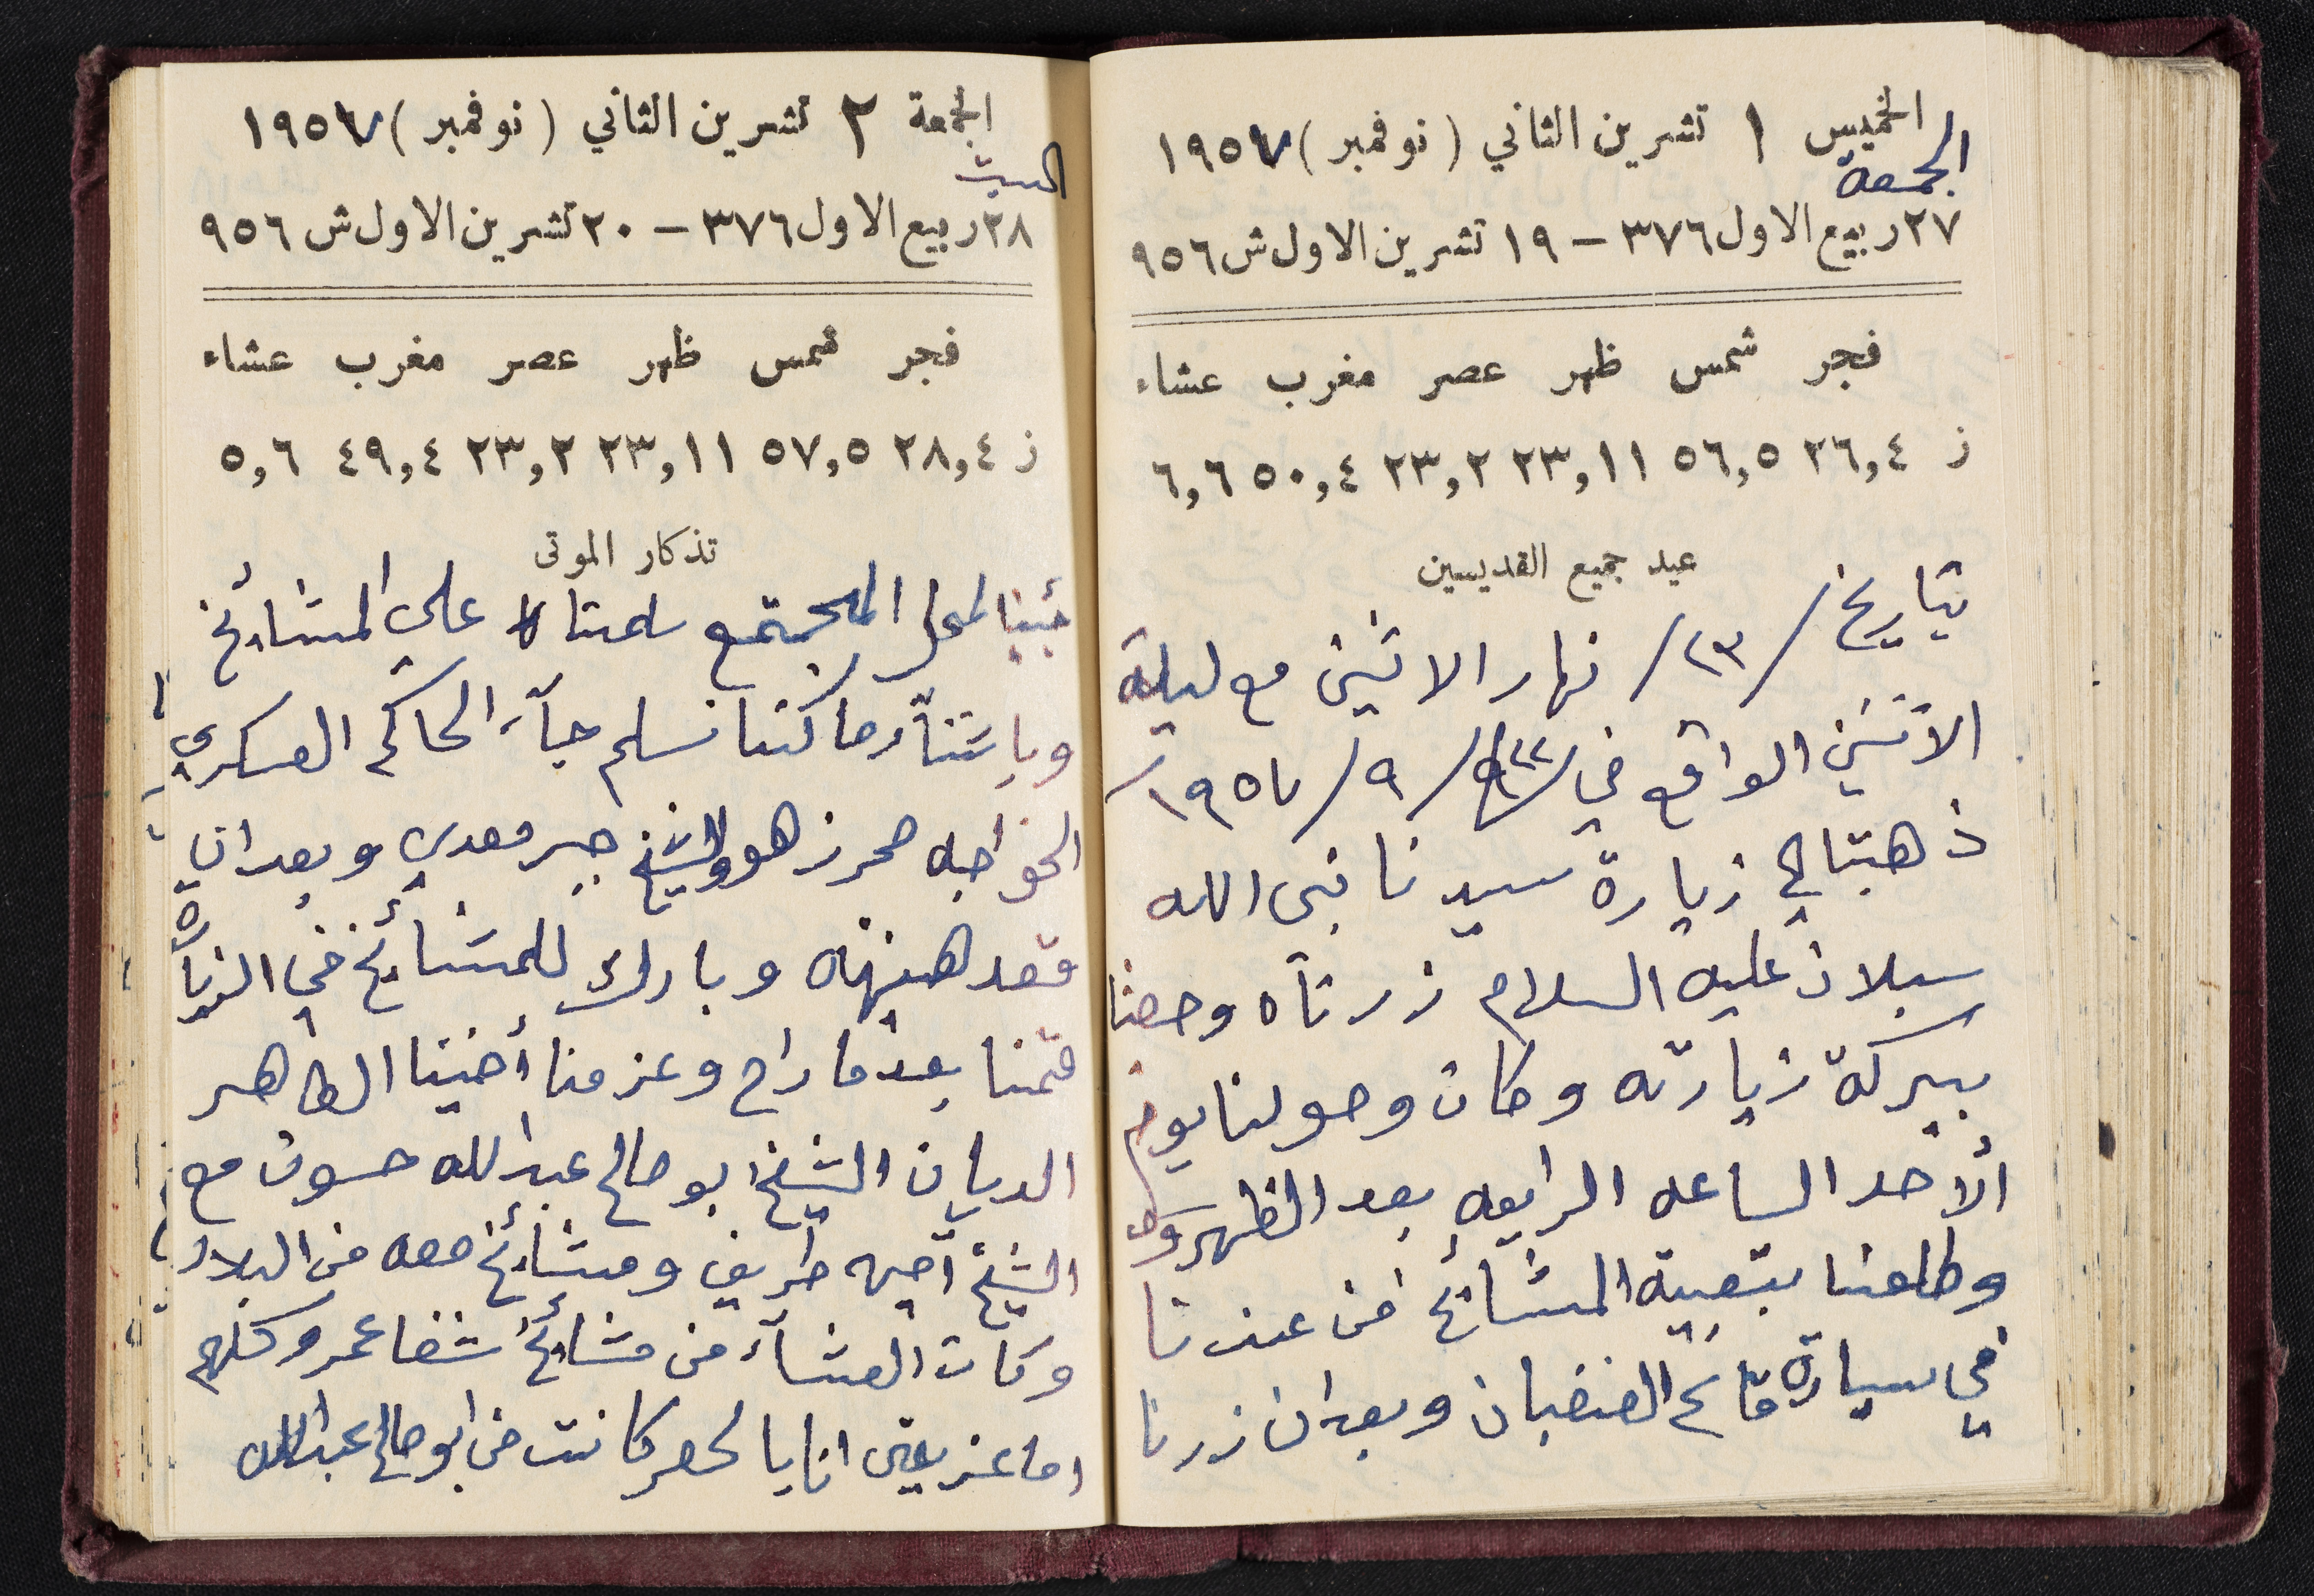 الخميس ١ تشرين الثاني (نوفمبر) ١٩٥٧
الجمعة
٢٧ ربيع الاول ٣٧٦ – ١٩ تشرين الاول ش ٩٥٦
فجر شمس ظهر عصر مغرب عشاء
ز ٢٦,٤ ٥٦,٥ ٢٣,١١ ٢٣,٢ ٥٠,٤ ٦,٦
عيد جميع القديسين
بتاريخ /٢٣/ نهار الاثنين مع ليلة
الاثنين الواقع في /٢٣/ ٩/ ١٩٥٧/
ذهبنا الى زيارة سيدنا نبي الله
سبلان عليه السلام زرناه وحضنا
ببركة زيارته وكان وصولنا يوم
ألأحد الساعه الرابعه بعد الظهر
وطلعنا بتعبية المشائخ من عندنا
في سيارة الغضبان وبعد ان زرنا
الجمعة ٢ تشرين الثاني (نوفمبر) ١٩٥٧
السبت
٢٨ ربيع الاول ٣٧٦ – ٢٠ تشرين الاول ش ٩٥٦
فجر شمس ظهر عصر مغرب عشاء
ز ٢٨,٤ ٥٧,٥ ٢٣,١١ ٢٣,٢ ٤٩,٤ ٥,٦
تذكار الموتى
جئينا لمحل المجتمع سلمنا على المشائخ
وباثنآء ما كنا نسلم جآء الحاكم العسكري
الخواجه محرز هو والشيخ جبر معدي وبعد ان
قعد هنيهه وبارك للمشائخ في الزيآرة
قمنا بعدما راح وعزمنا أخينا الطاهر
الديان الشيخ ابو صالح عبدالله حسون مع
الشيخ آمين طريف ومشائخ معه من البلاد
وكان العشآء من مشائخ شفاعمرو كلهم
اما عزيمتي انا بالحصر كانت من ابو صالح عبدالله